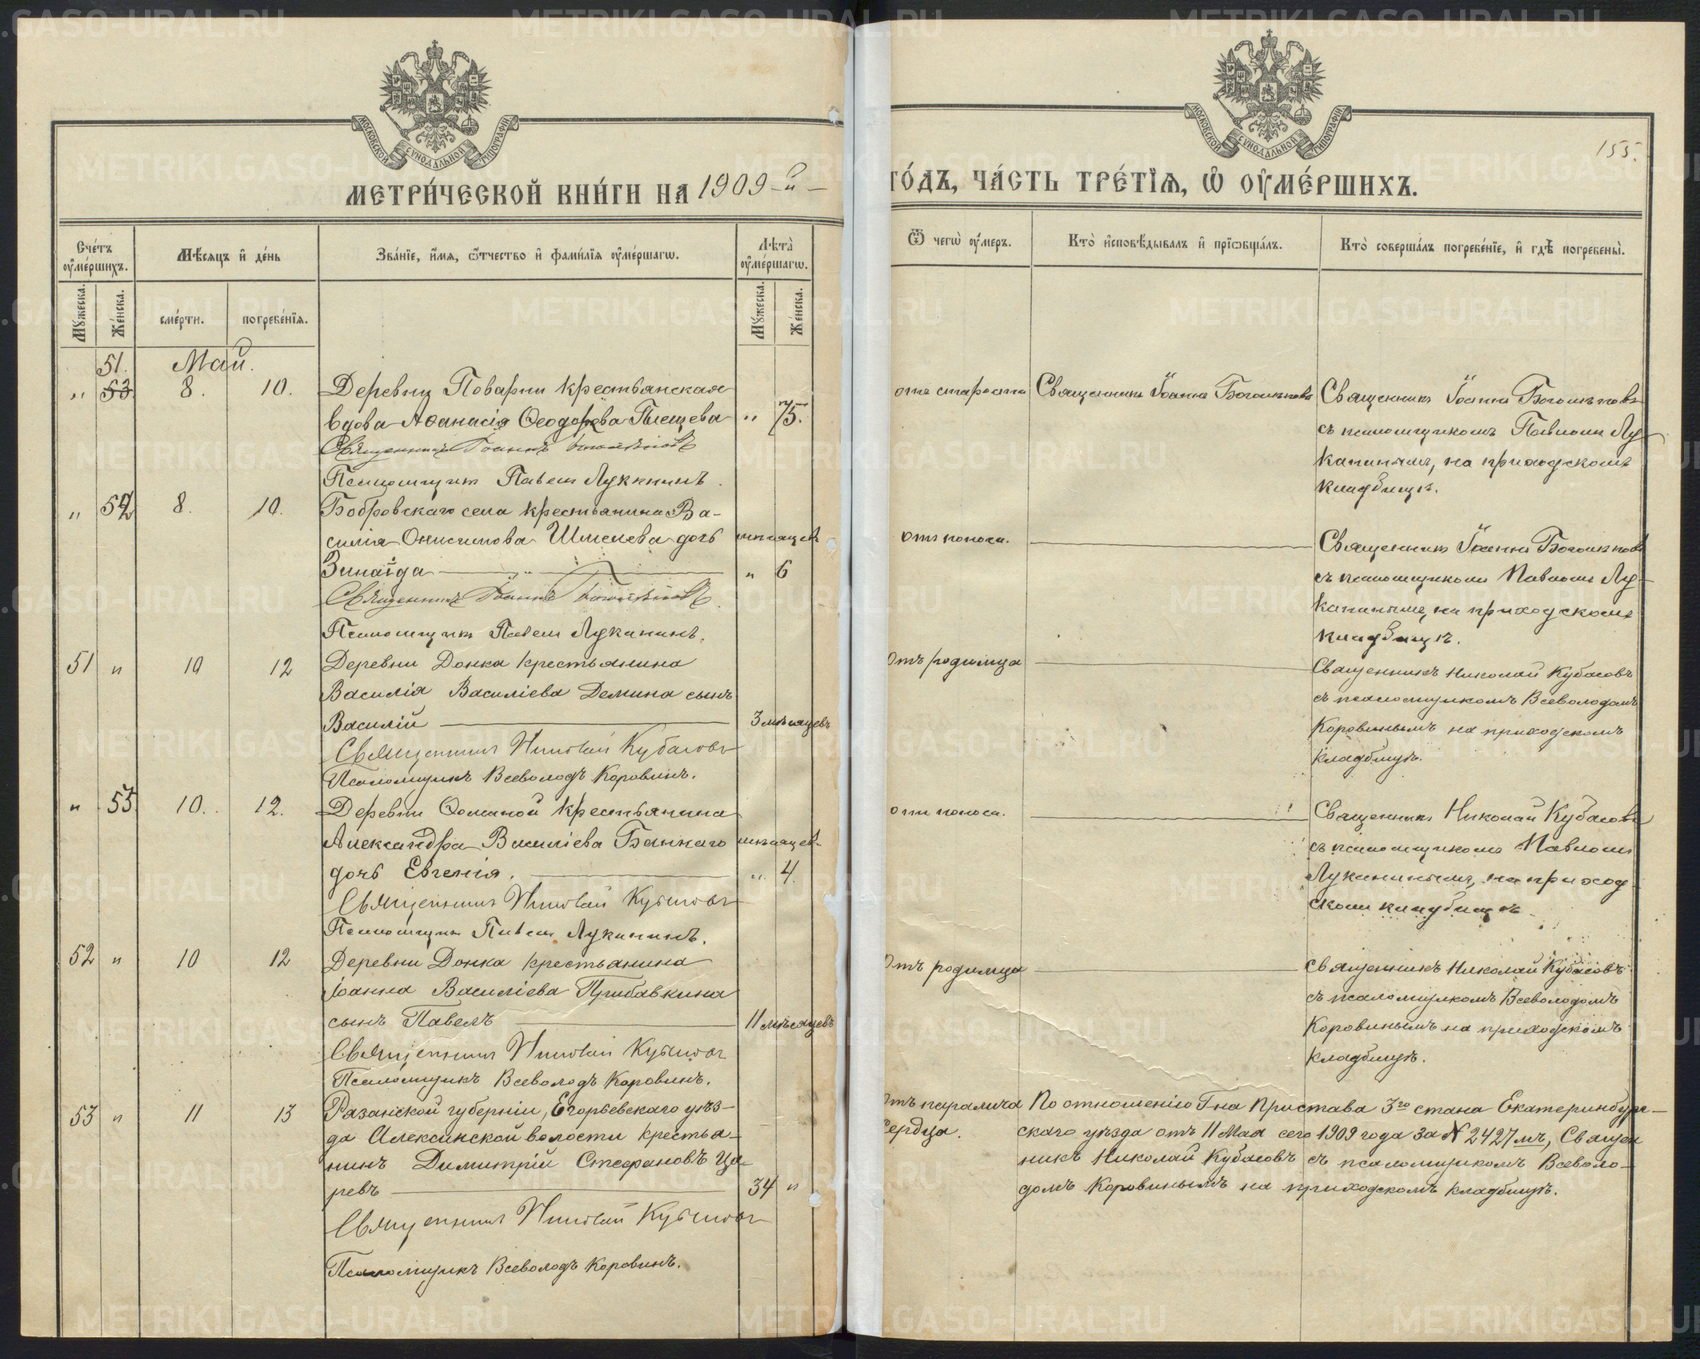 МЕТРИ́ЧЕСКОЙ КНИ́ГИ НА 1909-й
ГО́ДЪ, ЧА́СТЬ ТРЕ́ТІЯ, Ѡ ОУМЕ́РШИХЪ.
155.
Сче́тъ оумершихъ.
Мужеска.
Же́нска.
Мѣсяцъ и де́нь
сме́рти.
погребе́нія.
Зва́ніе, имя, отчество и фами́лія оумершагѡ.
Лѣта̀ оумершагѡ.
Мужеска.
Же́нска.
Ѿ чегѡ̀ оумеръ.
Кто̀ исповѣдывалъ и пріѡбща́лъ.
Кто̀ соверша́лъ погребе́ніе, и гдѣ̀ погребены̀.
Май.
" 51. 53 8. 10.
Деревни Поварни крестьянская
вдова Аѳанасія Ѳеодорова Пыещева " 75.
Священникъ Іоаннъ
Псаломщикъ Павелъ Луканинъ.
отъ старости
Священникъ Іоаннъ
Священникъ Іоаннъ
съ псаломщикомъ Павломъ Лу-
канинымъ, на приходскомъ
кладбищѣ.
" 52 8. 10.
Бобровскаго села крестьянина Ва-
силія Онисимова Шмелева дочь мѣсяцевъ
Зинаида " 6
Священникъ Іоаннъ
Псаломщикъ Павелъ Луканинъ.
отъ поноса.
Священникъ Іоаннъ
съ псаломщикомъ Павломъ Лу-
канинымъ, на приходскомъ
кладбищѣ.
51 " 10 12
Деревни Донка крестьянина
Василія Василіева Демина сынъ
Василій 3 мѣсяцевъ
Священникъ Николай Кубасовъ
Псаломщикъ Всеволодъ Коровинъ.
отъ родимца
Священникъ Николай Кубасовъ
съ псаломщикомъ Всеволодомъ
Коровинымъ на приходскомъ
кладбищѣ.
" 53 10. 12.
Деревни крестьянина
Александра Василіева мѣсяцев.
дочь Евгенія. " 4.
Священникъ Николай Кубасовъ
Псаломщикъ Павелъ Луканинъ.
отъ поноса.
Священникъ Николай Кубасовъ
съ псаломщикомъ Павломъ
Луканинымъ, на приход-
скомъ кладбищѣ.
52 " 10 12
Деревни Донка крестьянина
Іоанна Василіева Прибавкина
сынъ Павелъ 11 мѣсяцевъ
Священникъ Николай Кубасовъ
Псаломщикъ Всеволодъ Коровинъ.
отъ родимца
Священникъ Николай Кубасовъ
съ псаломщикомъ Всеволодомъ
Коровинымъ на приходскомъ
кладбищѣ.
53 " 11 13
Рязанской губерніи, Егорьевскаго уѣз-
да Алексинской волости крестья-
нинъ Димитрій Стефановъ Ца-
ревъ 34 "
Священникъ Николай Кубасовъ
Псаломщикъ Всеволодъ Коровинъ.
отъ паралича
сердца.
По отношенію Г-на Пристава 3го стана Екатеринбург-
скаго уѣзда отъ 11 Мая сего 1909 года за № 2427мъ, Священ
никъ Николай Кубасовъ съ псаломщикомъ Всеволо-
домъ Коровинымъ на приходскомъ кладбищѣ.